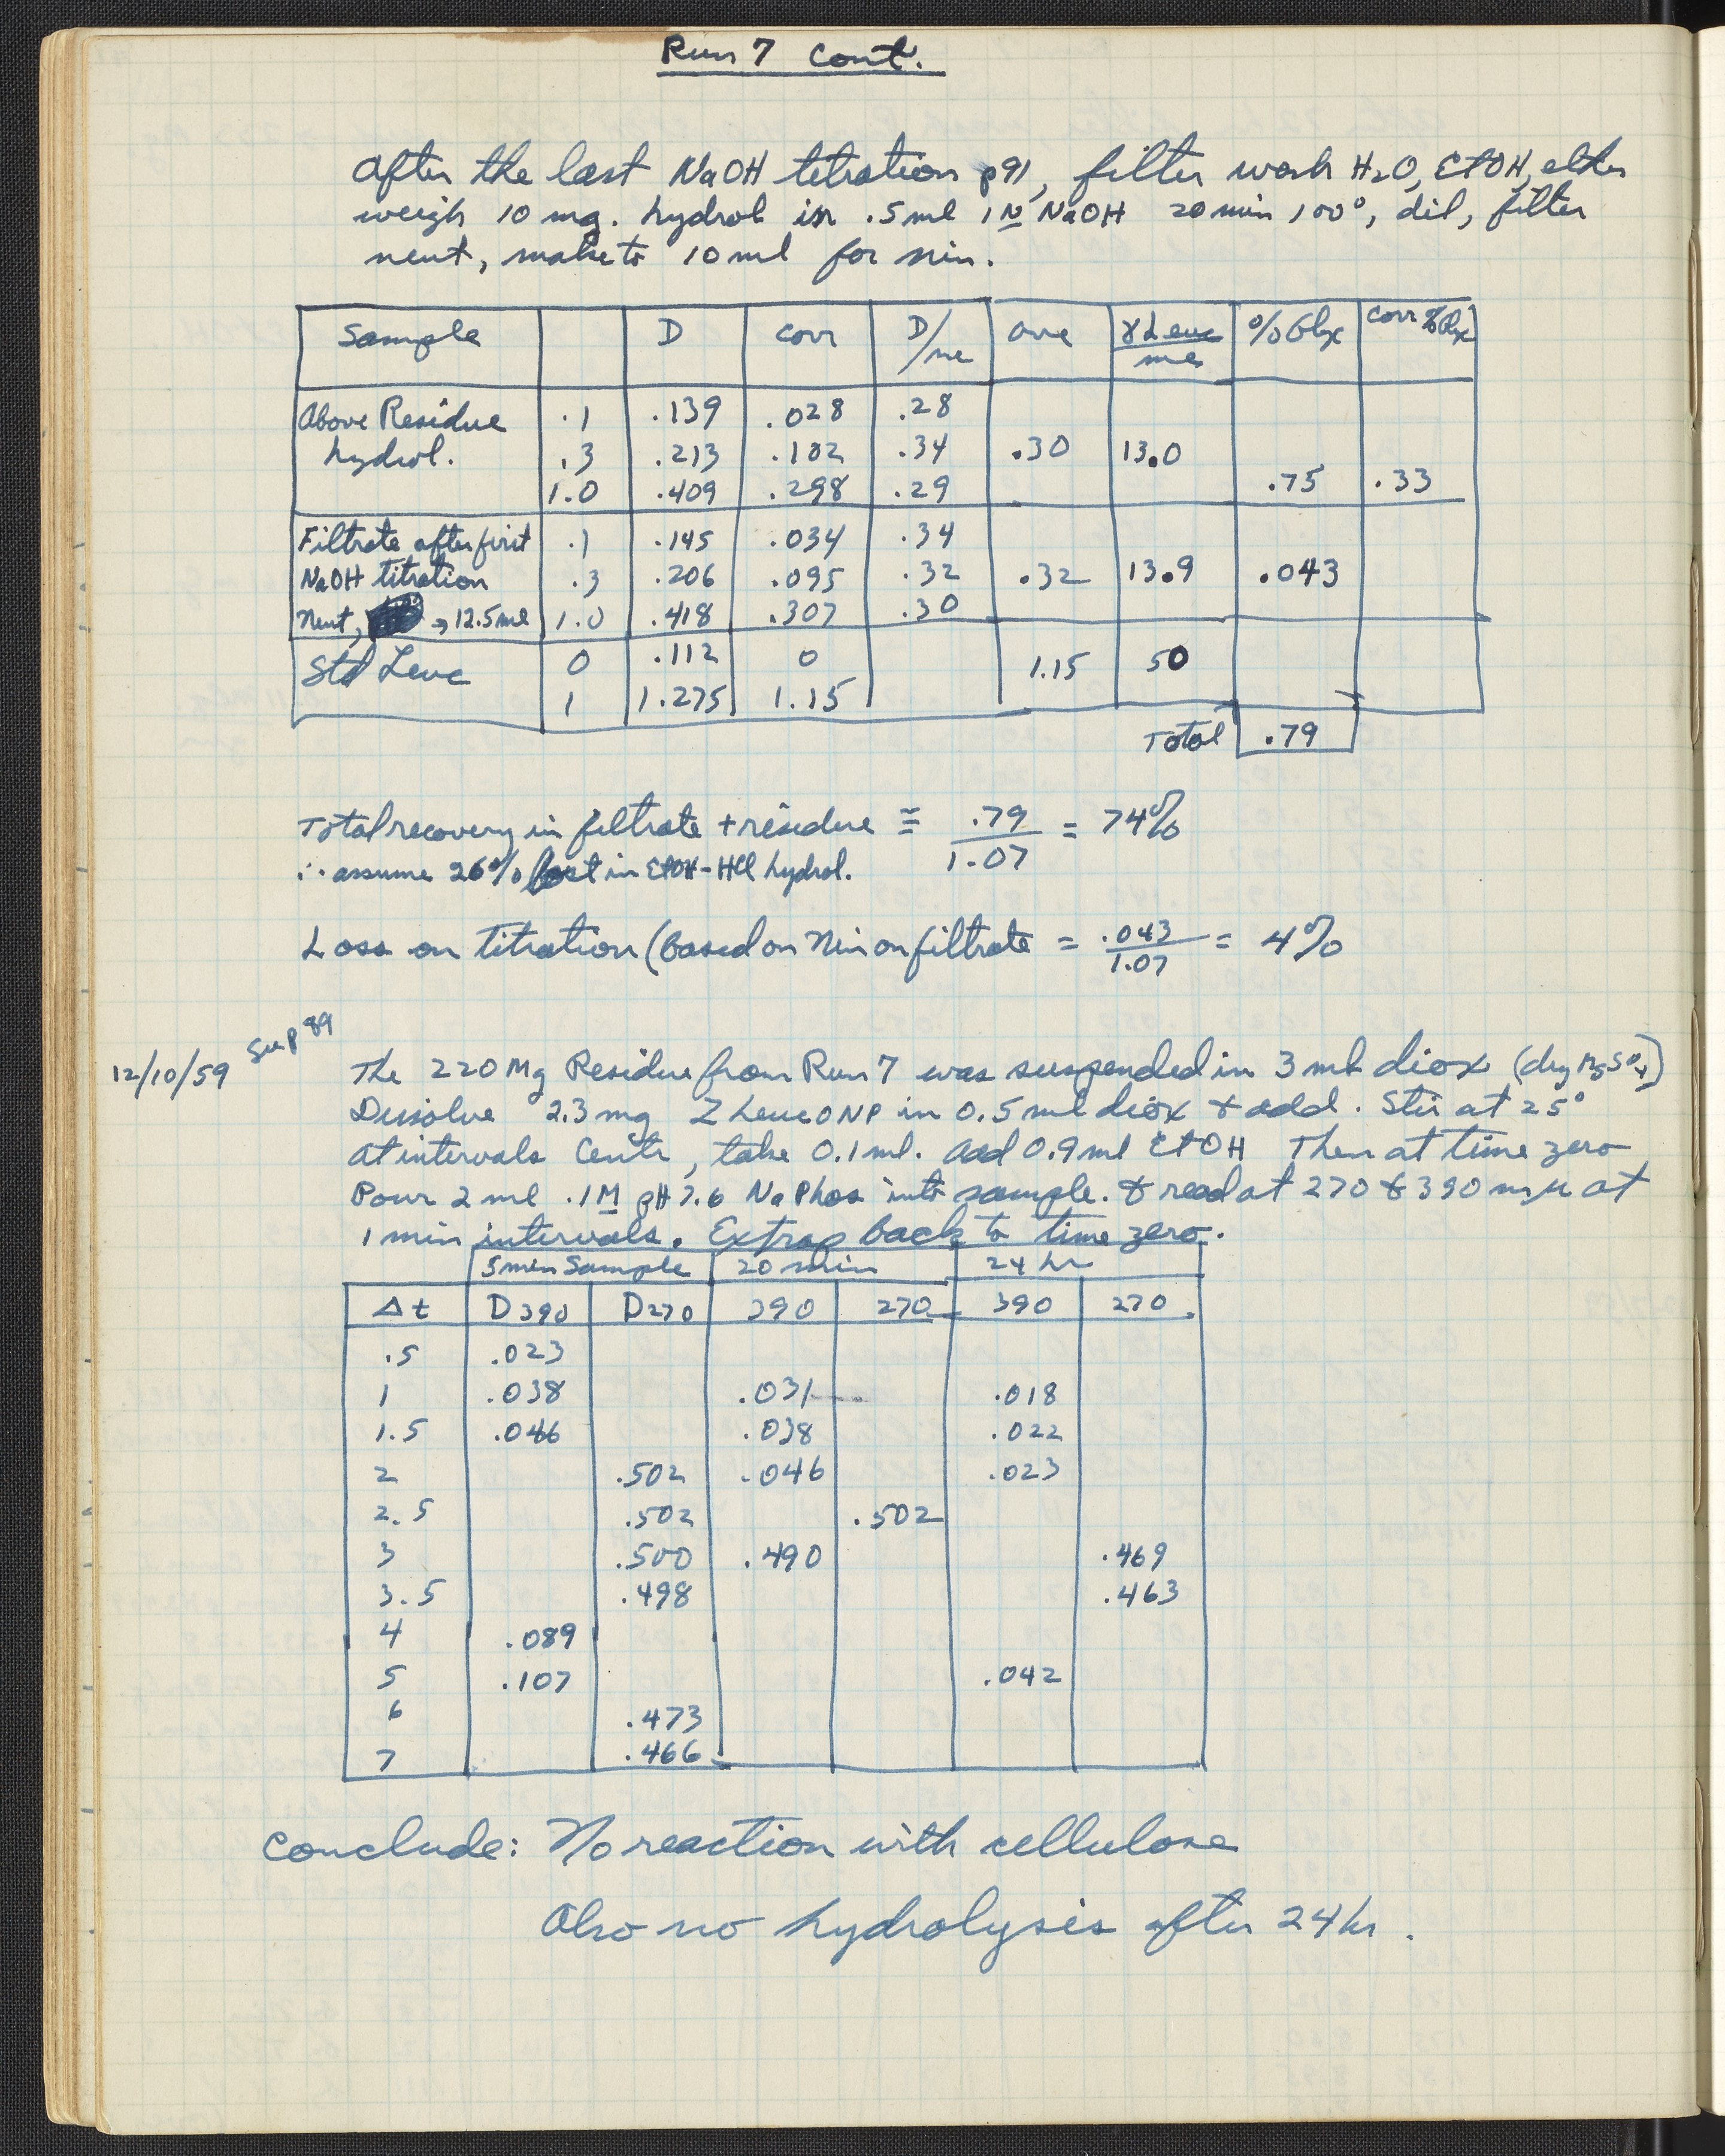 Run 7 Cont.
After the last NaOH titration p91, filter wash H2O, EtOH, ether
weigh 10 mg. hydrol in .5 ml 1N NaOH 20 min 100°, dil, filter
neut, make to 10 ml for nin.
Sample D corr D/ml ave γ Leuc/ml % Glx corr % Glx
Above Residue .1 .139 .028 .28
hydrol. .3 .213 .102 .34 .30 13.0
1.0 .409 .298 .29 .75 .33
Filtrate after first .1 .145 .034 .34
NaOH titration .3 .206 .095 .32 .32 13.9 .043
Neut, → 12.5 ml 1.0 .418 .307 .30
Std Leuc 0 .112 0 1.15 50
1 1.275 1.15
Total .79
Total recovery in filtrate + residue ≅ .79/1.07 = 74%
∴ assume 26% lost in EtOH-HCl hydrol.
Loss on titration (based on Nin on filtrate = .043/1.07 = 4%
12/10/59 See p 89
The 220 Mg Residue from Run 7 was suspended in 3 ml diox (dry MgSO4)
Dissolve 2.3 mg Z Leuc ONP in 0.5 ml diox & add. Stir at 25°
At intervals Centr, take 0.1 ml. add 0.9 ml EtOH Then at time zero
Pour 2 ml .1M pH 7.6 Na Phos into sample. & read at 270 & 390 mμ at
1 min intervals. Extrap back to time zero.
5 min Sample 20 min 24 hr
Δt D390 D270 390 270 390 270
.5 .023
1 .038 .031 .018
1.5 .046 .038 .022
2 .502 .046 .023
2.5 .502 .502
3 .500 .490 .469
3.5 .498 .463
4 .089
5 .107 .042
6 .473
7 .466
Conclude: No reaction with cellulose
Also no hydrolysis after 24 hr.